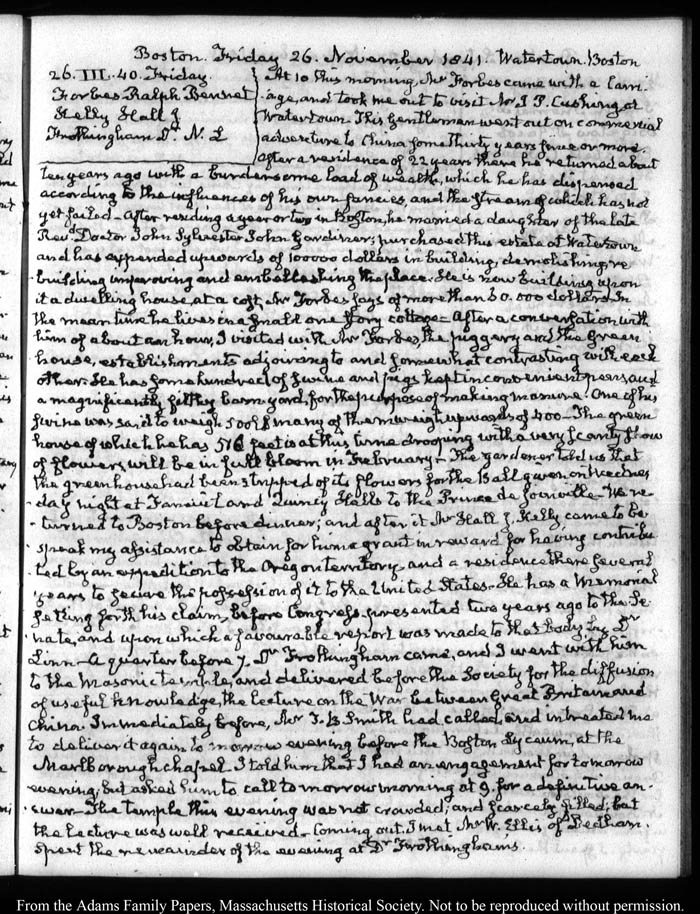 Boston. Friday 26. November 1841. Watertown. Boston
26. III. 40. Friday.
Forbes Ralph Bennet
Kelly Hall J
Frothingham Dr. N. L
At 10 this morning, Mr Forbes came with a Carri-
age, and took me out to visit Mr J. P. Cushing at
Watertown. This Gentleman went out on commercial
adventure to China some thirty years since or more.
After a residence of 22 years there he returned about
ten years ago with a burdensome load of wealth, which he has dispensed
according to the influences of his own fancies, and the stream of which has not
yet failed— After residing a year or two in Boston, he married a daughter of the late
Revd Doctor John Sylvester John Gardiner; purchased this estate at Watertown
and has expended upwards of 100000 dollars in building, demolishing, re-
building improving and embellishing the place. He is now building upon
it a dwelling house, at a cost, Mr Forbes says of more than 50.000 dollars. In
the mean time he lives in a small one story cottage— After a conversation with
him of about an hour, I visited with Mr Forbes, the piggery and the Green
house, establishments adjoining to and somewhat contrasting with each
other. He has some hundred of swine and pigs kept in convenient pens, and
a magnificently filthy barn-yard, for the purpose of making manure. One of his
swine was said to weigh 500 many of them weigh upwards of 400— The green
house of which he has 516 feet is at this time drooping with a very scanty show
of flowers, will be in full bloom in February— The gardener told us that
the greenhouse had been stripped of its flowers for the Ball given on Wednes-
day night at Faneuil and Quincy Halls to the Prince de Joinville— We re-
turned to Boston before dinner; and after it Mr Hall J. Kelly came to be-
speak my assistance to obtain for him a grant in reward for having contribu-
ted by an expedition to the Oregon territory, and a residence there several
years to secure the possession of it to the United States. He has a Memorial
setting forth his claim, before Congress, presented two years ago to the Se-
nate, and upon which a favourable report was made to that body by Dr
Linn— A quarter before 7. Dr Frothingham came, and I went with him
to the Masonic temple, and delivered before the Society for the diffusion
of useful knowledge, the lecture on the War between Great Britain and
China. Immediately before, Mr J. B Smith had called, and intreated me
to deliver it again to morrow evening before the Boston Lyceum, at the
Marlborough chapel. I told him that I had an engagement for tomorrow
evening, but asked him to call to morrow morning at 9. for a definitive an-
swer— The temple this evening was not crowded; and scarcely filled; but
the lecture was well received— Coming out, I met Mr W. Ellis of Dedham.
Spent the remainder of the evening at Dr Frothingham's.
From the Adams Family Papers, Massachusetts Historical Society. Not to be reproduced without permission.